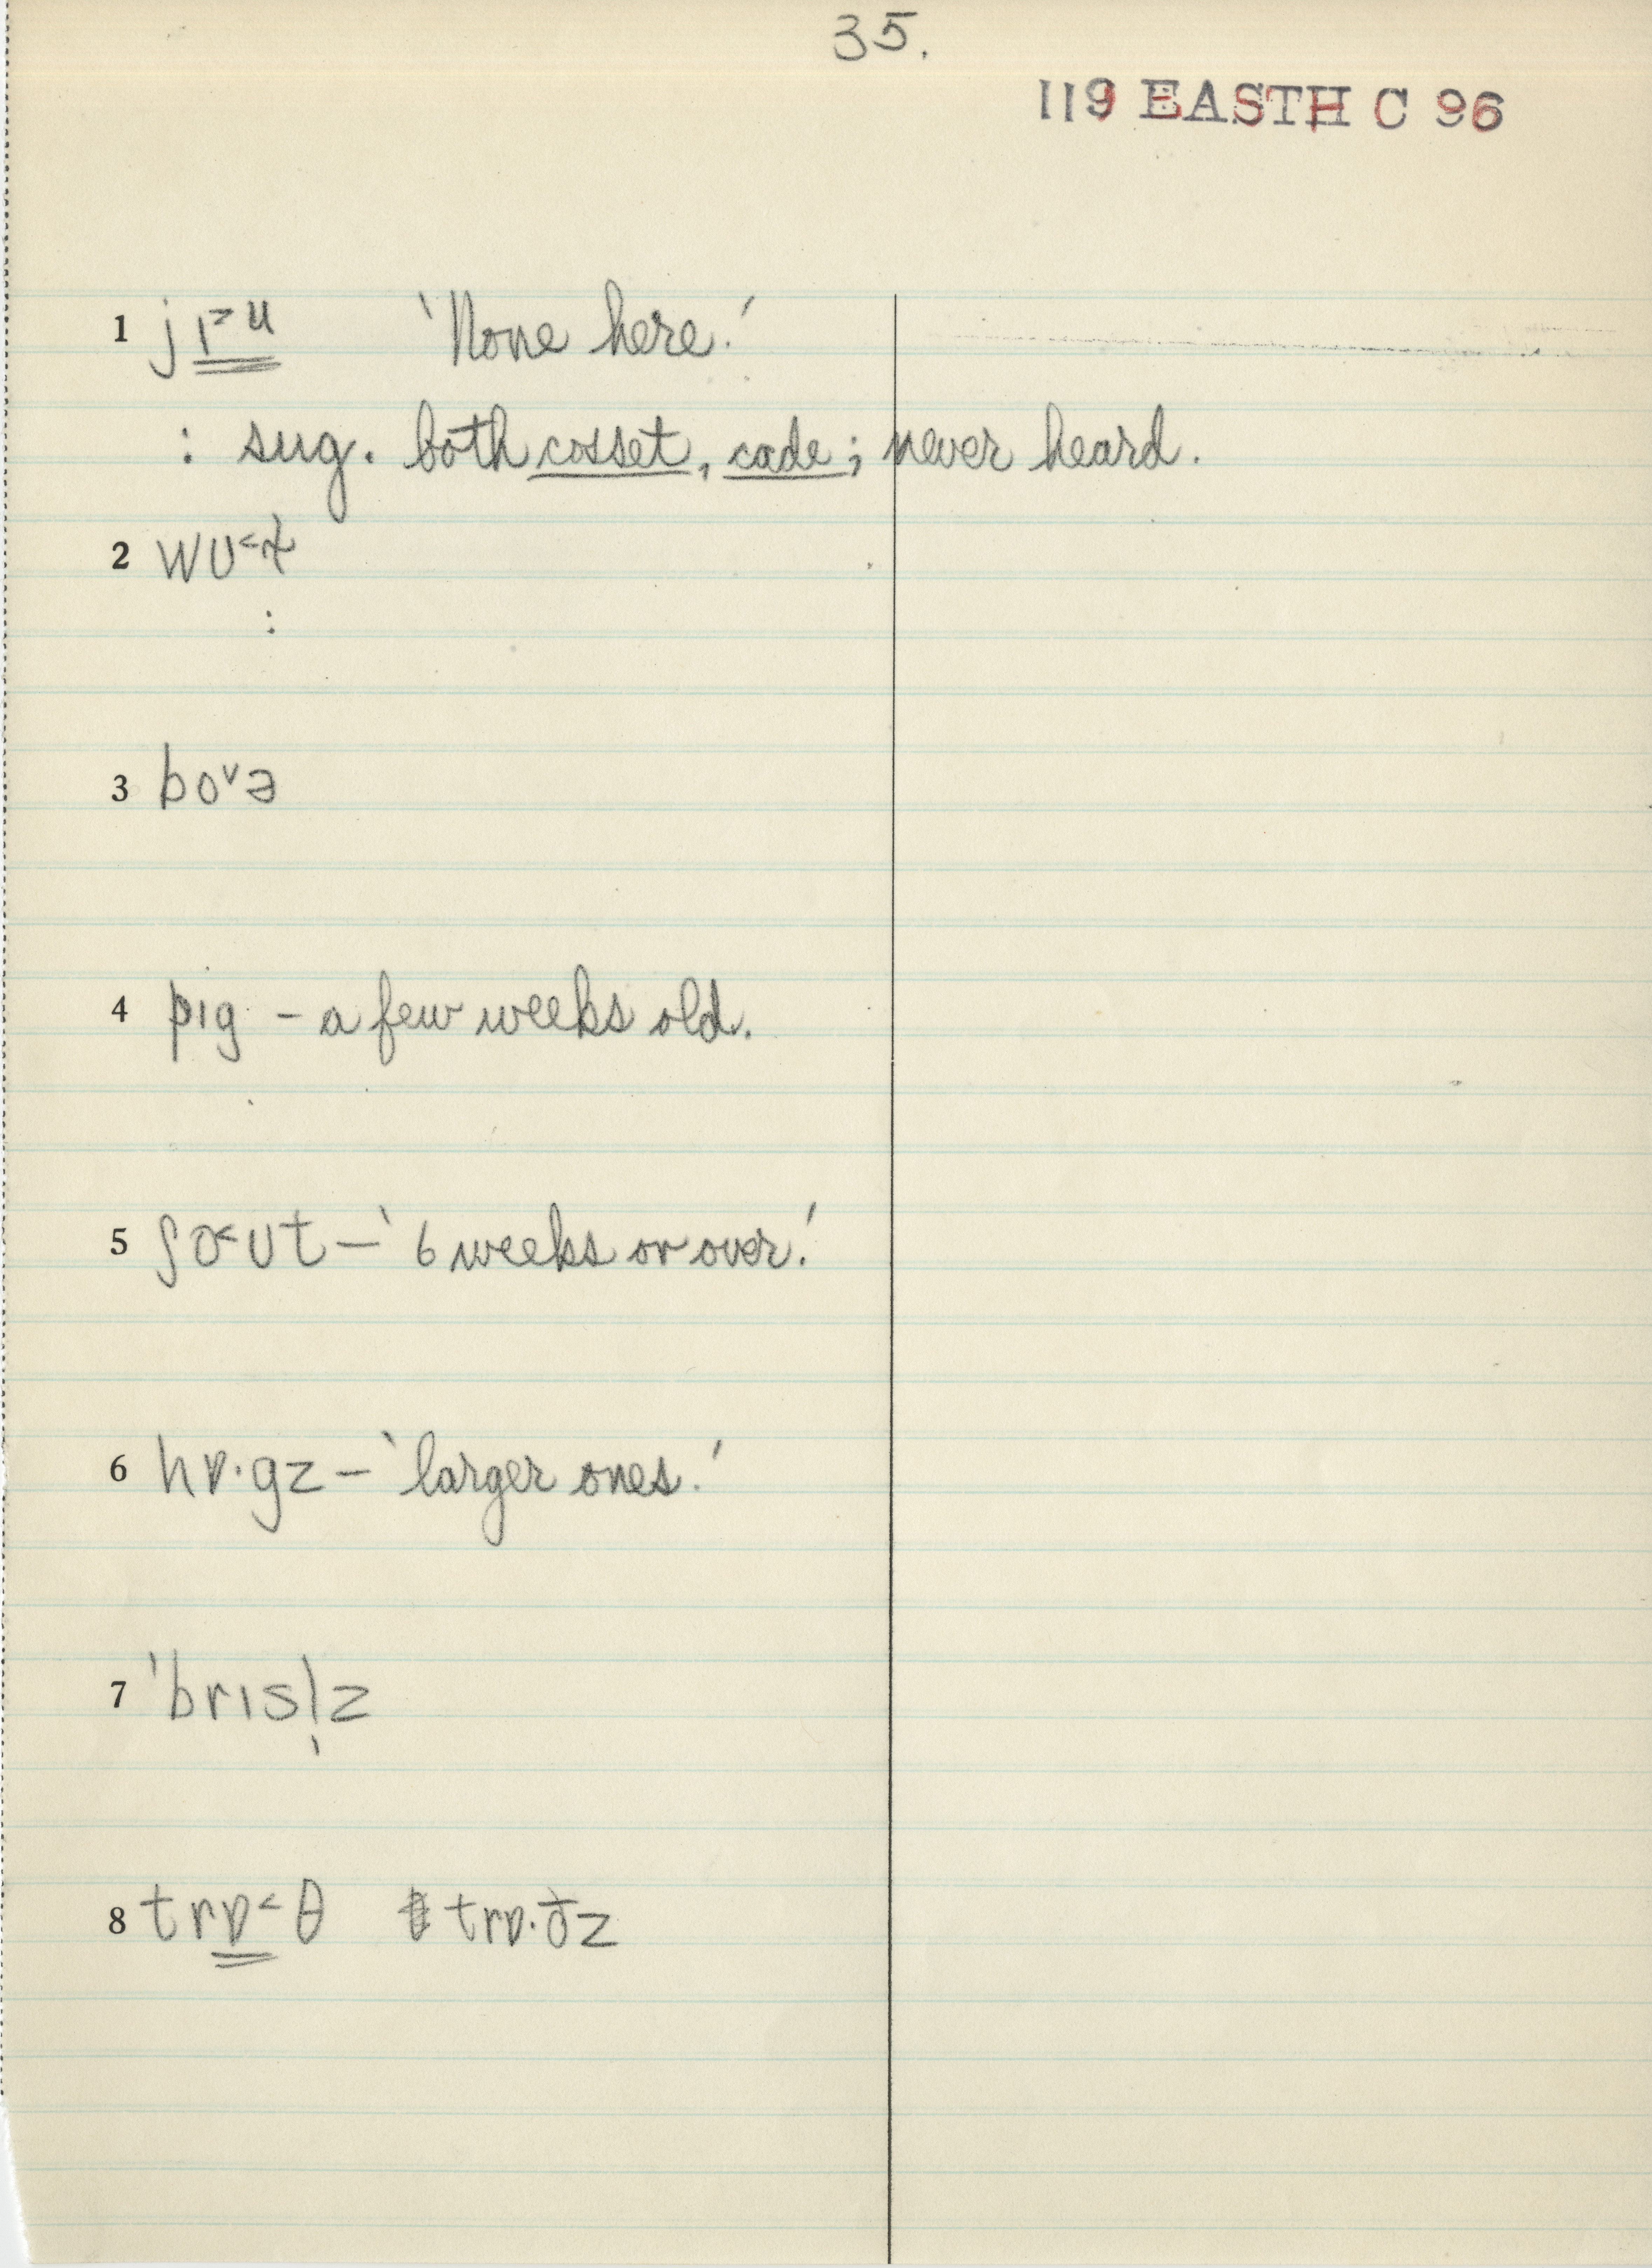 35.
119 EASTH C 96
1 jɪ˃u 'None here.'
: sug. both cosset, cade; never heard.
2
:
3 bo˅ə
4 pɪg - a few weeks old.
5 ʃo˂ʊt - '6 weeks or over.'
6 hɒ·gz - 'larger ones.'
7 'brɪsl̩z
8 trɒ˂θ trɒ·ðz